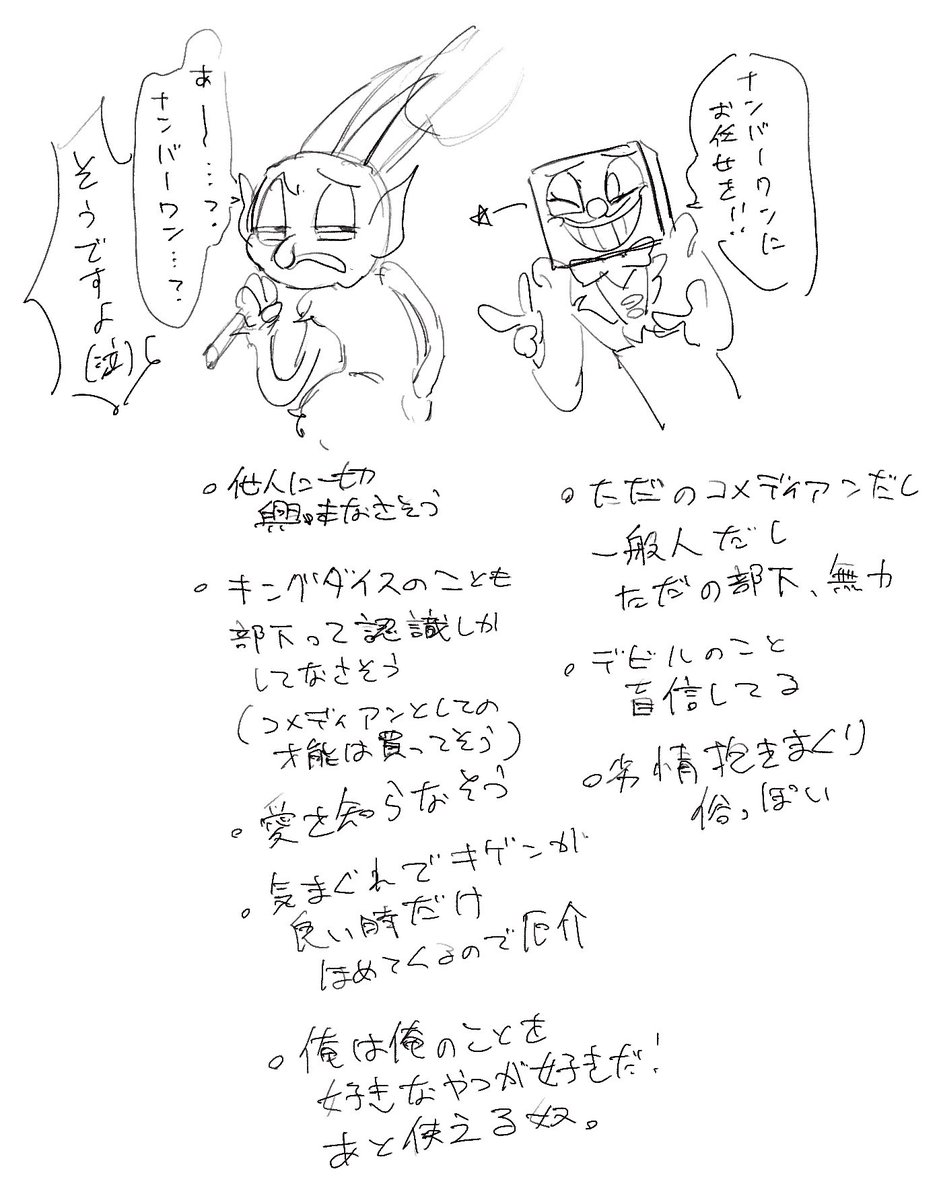 ナンバーワンに
お任せを!!
あー…っ?
ナンバーワン…?
そうですよ
(泣)
他人に一切
興味なさそう
キングダイスのことも
部下って認識しか
してなさそう
(コメディアンとしての
才能は買ってそう)
愛を知らなそう
気まぐれでキゲンが
良い時だけ
ほめてくるので厄介
俺は俺のことを
好きなやつが好きだ!
あと使える奴。
ただのコメディアンだし
一般人だし
ただの部下、無力
デビルのこと
盲信してる
劣情抱きまくり
俗っぽい